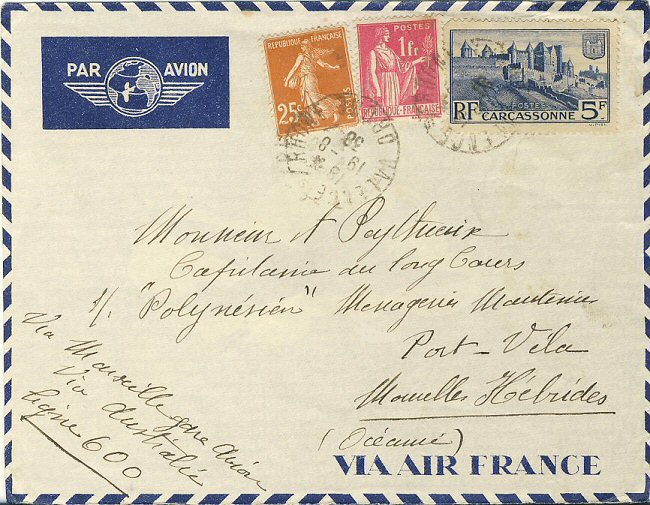 PAR AVION
REPUBLIQUE FRANÇAISE
25c
POSTES
1Fr
POSTES
REPUBLIQUE-FRANÇAISE
POSTES
RF CARCASSONNE 5F
VALENCE
DROME
19 -8
38
Monsieur A
Capitaine au long Cours
"Polynésien" Messageries Maritimes
Port-Vila
Nouvelles Hébrides
(Océanie)
Via Marseille gare Avion
Via Australie
Ligne 600
VIA AIR FRANCE